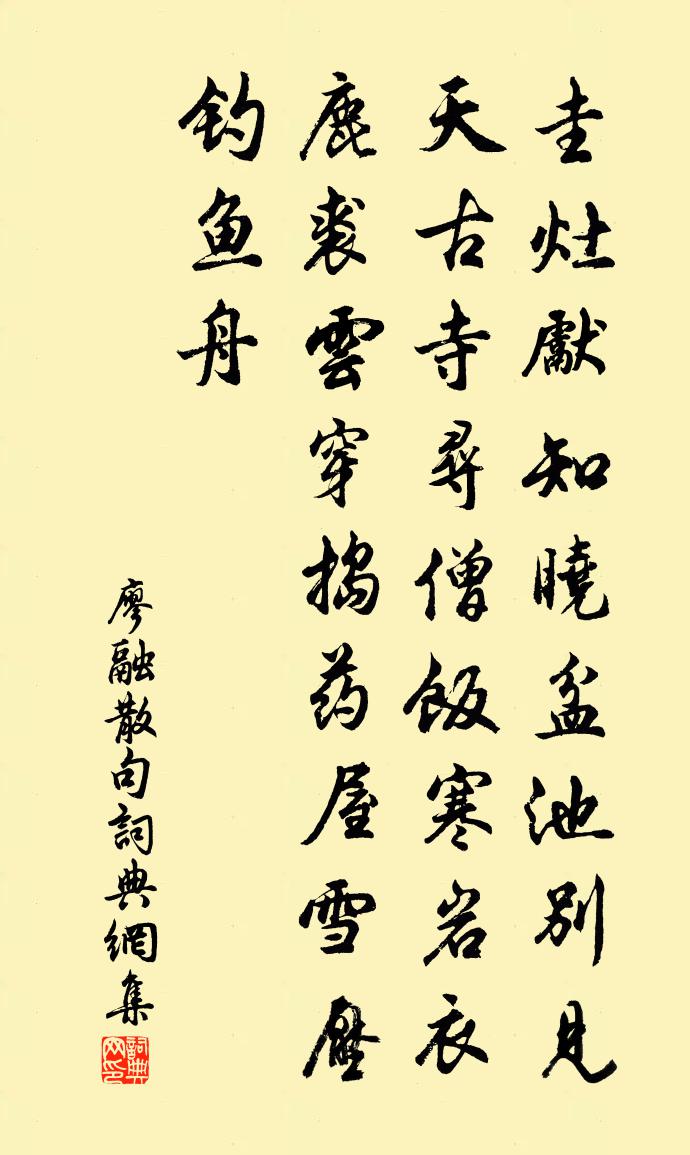 圭灶獻知曉盆池別見
天古寺尋僧飯寒岩衣
鹿裘雲穿搗药屋雪壓
钓鱼舟
廖融散句詞典網集
詞典网印